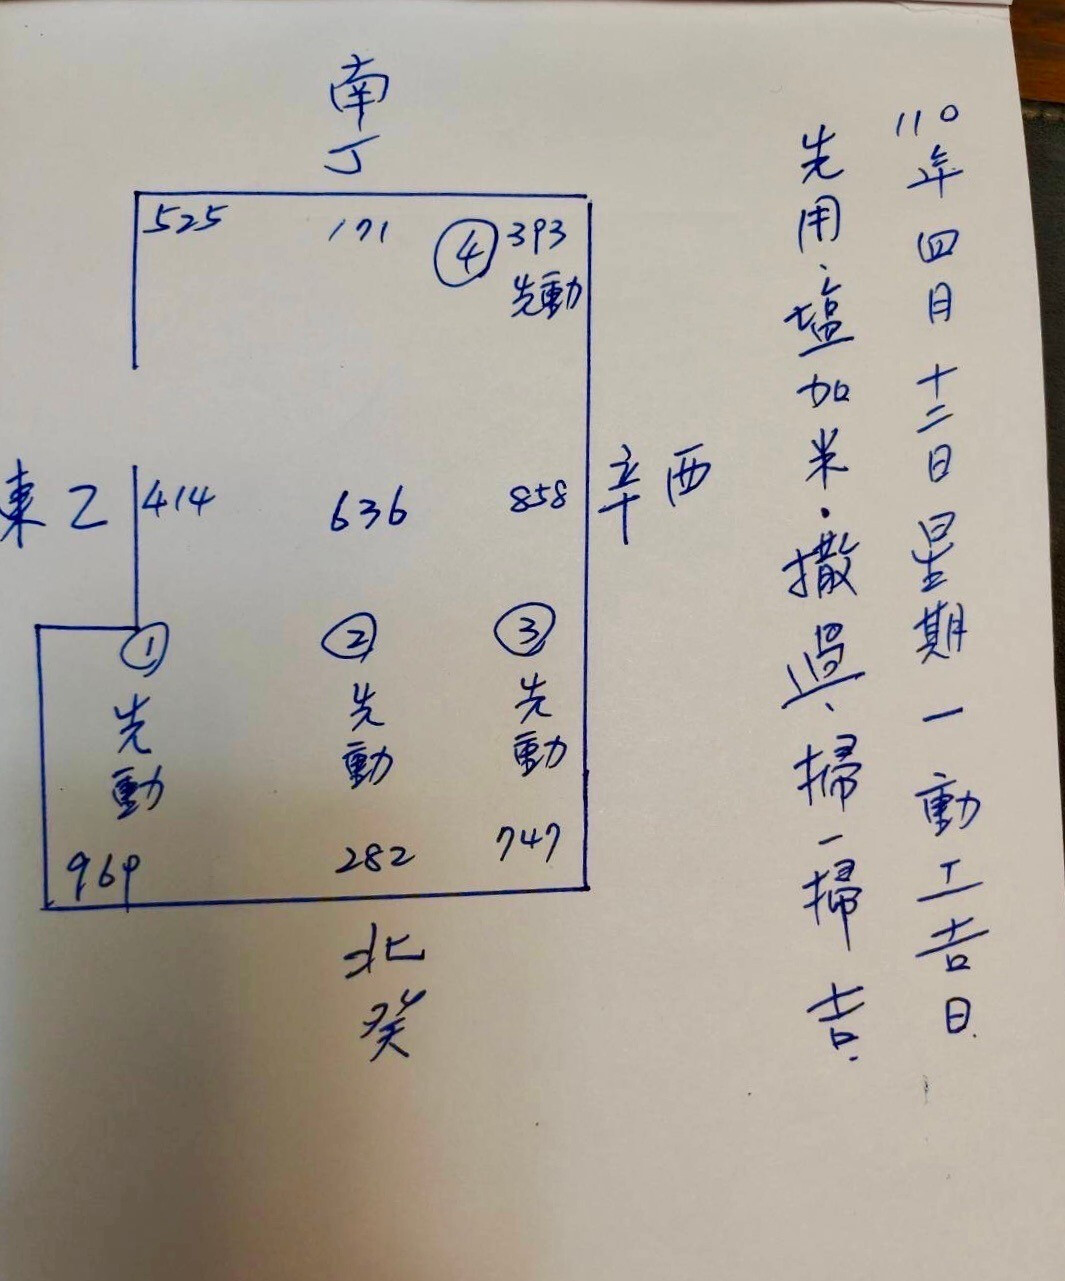 110年四月十二日星期一動工吉日.
先用塩加米.撒過、掃一掃吉.
南
丁
525 171 ④ 393
先動
東乙 414 636 858 辛西
① ② ③
先動 先動 先動
969 282 747
北
癸